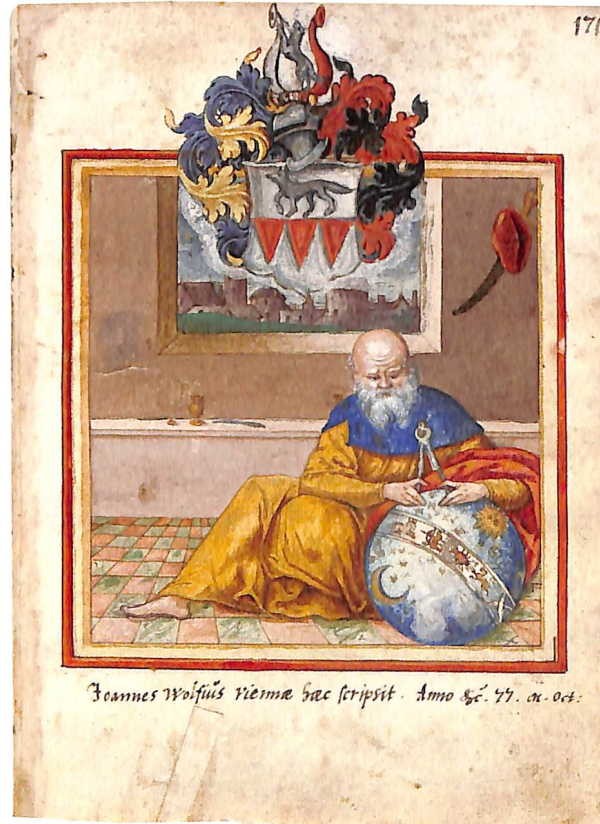 171
Joannes Wolfius Viennæ hæc scripsit. Anno &c. 77. m. Oct: